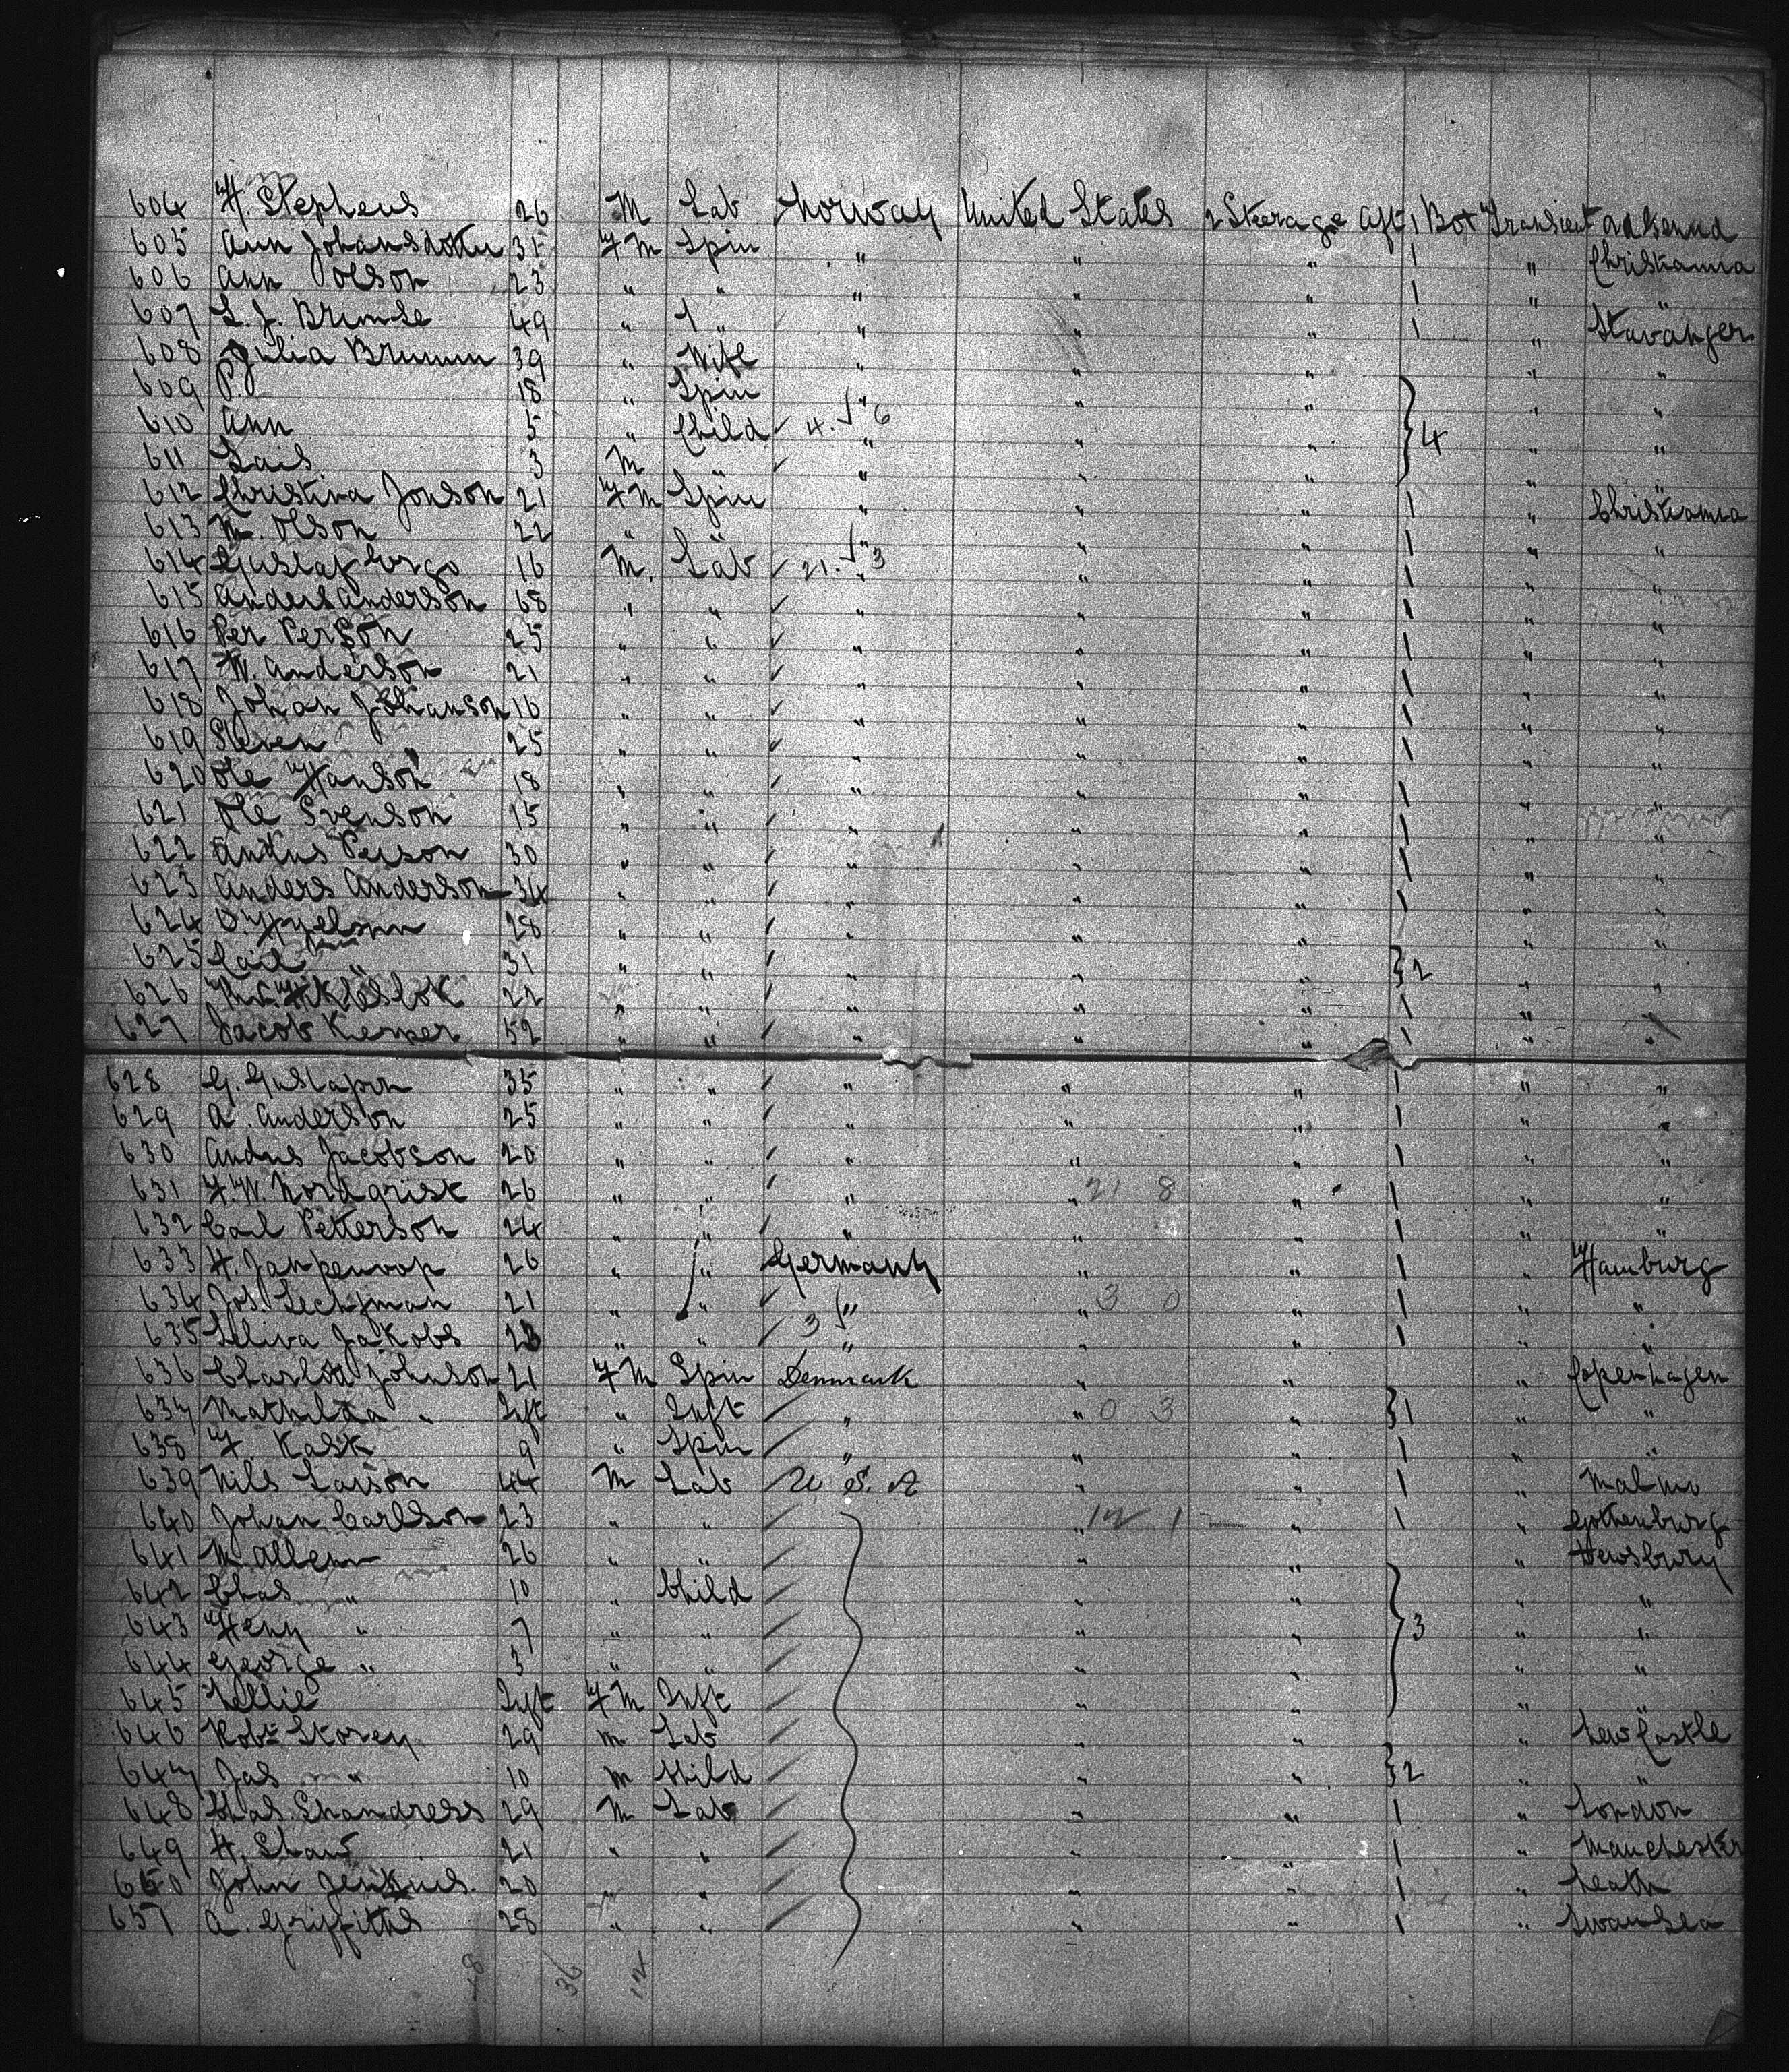 604 H. Stephens 26 M Lab Norway United States 2 Steerage Aft 1 Box Transient
605 Ann Johansdotter 31 FM Spin " " " 1 " Christiania
606 Ann Olson 23 " " " " " 1 " "
607 L. J. 49 " " " " 1 " Stavanger
608 Julia 39 " Wife " " " " "
609 P. 18 " Spin " " " " "
610 Ann 5 " Child 4. 6 " " " 4 " "
611 3 M " " " " " "
612 Christina Jonson 21 FM Spin " " " 1 " Christiania
613 M. Olson 22 " " " " " 1 " "
614 Gustaf 16 M. Lab 21. 3 " " " 1 " "
615 Anders Anderson 68 " " " " " 1 " "
616 Per Person 25 " " " " " 1 " "
617 W. Anderson 21 " " " " " 1 " "
618 Johan Johanson 16 " " " " " 1 " "
619 Steven " 25 " " " " " 1 " "
620 Ole Hanson 18 " " " " " 1 " "
621 Ole Svenson 15 " " " " " 1 " "
622 Person 30 " " " " " 1 " "
623 Anders Anderson 34 " " " " " 1 " "
624 28 " " " " " " "
625 " 31 " " " " " 2 " "
626 22 " " " " " 1 " "
627 Jacob 52 " " " " " 1 " "
628 G. 35 " " " " " 1 " "
629 A. Anderson 25 " " " " " 1 " "
630 Jacobson 20 " " " " " 1 " "
631 F. W. 26 " " " " 21 8 " 1 " "
632 Carl Petterson 24 " " " " " 1 " "
633 H. 26 " " Germany " " 1 " Hamburg
634 Jos. 21 " " " " 3 0 " 1 " "
635 Jakobs 23 " " 3 " " " 1 " "
636 Johnson 21 FM Spin Denmark " " " Copenhagen
637 Mathilda " Inft " Inft " " 0 3 " 1 " "
638 F. Kask 9 " Spin " " " 1 " "
639 Nils Larson 44 M Lab U. S. A " " 1 " Malmo
640 Johan Carlson 23 " " " 12 1 " 1 " Gothenburg
641 M Allen 26 " " " " " Dewsbury
642 Chas " 10 " Child " " " "
643 Heny " 7 " " " " 3 " "
644 George " 3 " " " " " "
645 Nellie Inft FM Inft " " " "
646 Robt Storey 29 M Lab " " " New Castle
647 Jas " 10 M Child " " 2 " "
648 Chas. 29 M Lab " " 1 " London
649 H. Shaw 21 " " " " 1 " Manchester
650 John Jenkins. 20 " " " " 1 " Neath
651 A. Griffiths 28 " " " " 1 " Swansea
36 12